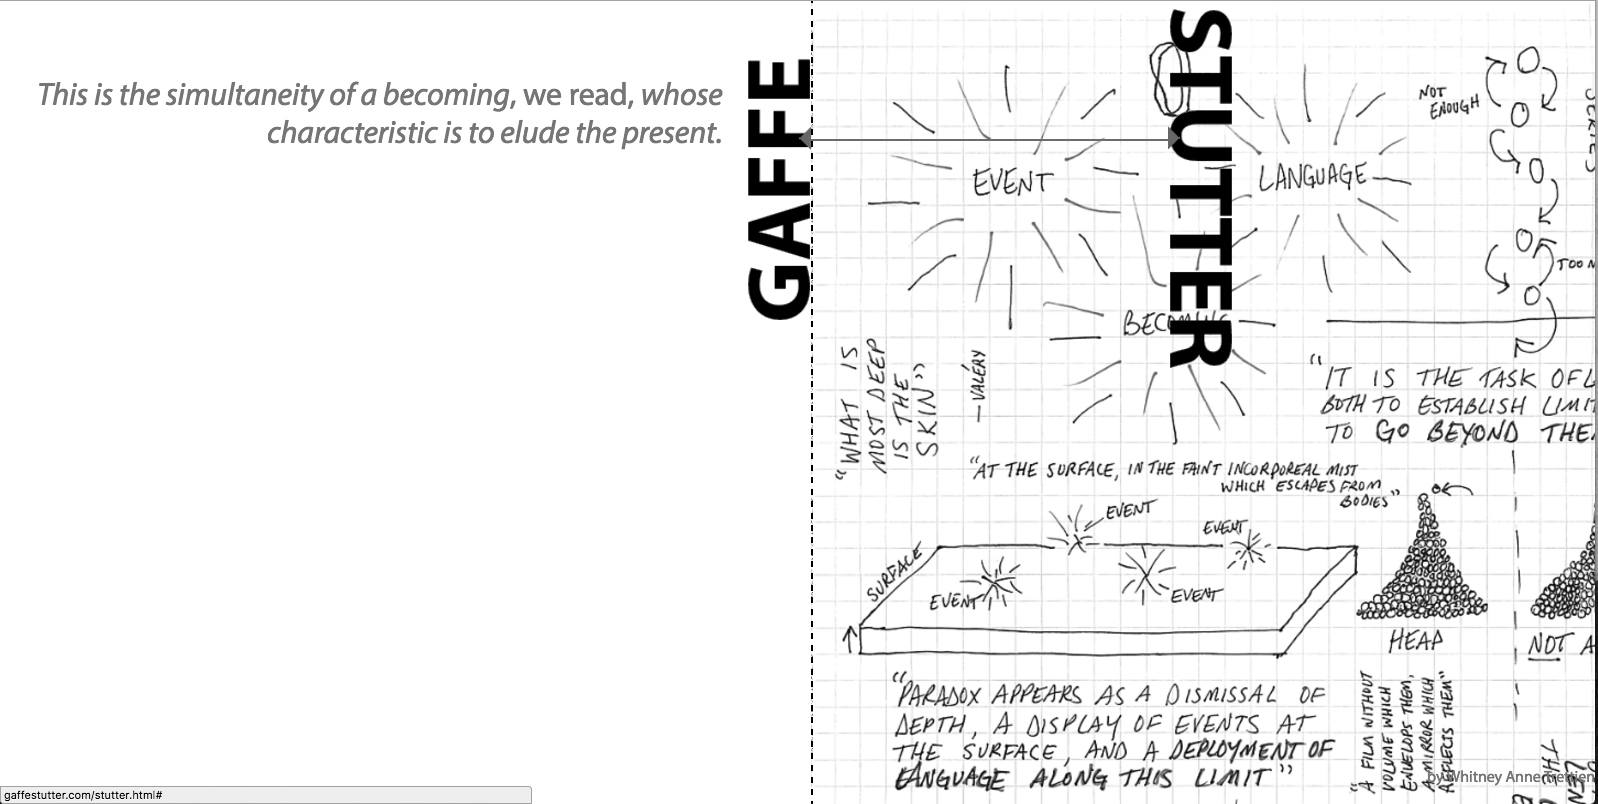 This is the simultaneity of a becoming, we read, whose
characteristic is to elude the present.
GAFFE
STUTTER
EVENT
LANGUAGE
BECOMING
NOT
ENOUGH
SERIES
TOO
"WHAT IS
MOST DEEP
IS THE
SKIN"
—VALÉRY
"IT IS THE TASK OF L
BOTH TO ESTABLISH LIMIT
TO GO BEYOND THE
"AT THE SURFACE, IN THE FAINT INCORPOREAL MIST
WHICH ESCAPES FROM
BODIES"
SURFACE
EVENT
EVENT
EVENT
EVENT
HEAP
NOT A
"PARADOX APPEARS AS A DISMISSAL OF
DEPTH, A DISPLAY OF EVENTS AT
THE SURFACE, AND A DEPLOYMENT OF
LANGUAGE ALONG THIS LIMIT"
"A FILM WITHOUT
VOLUME WHICH
ENVELOPS THEM,
A MIRROR WHICH
REFLECTS THEM"
THE
by Whitney Anne Trettien
gaffestutter.com/stutter.html#